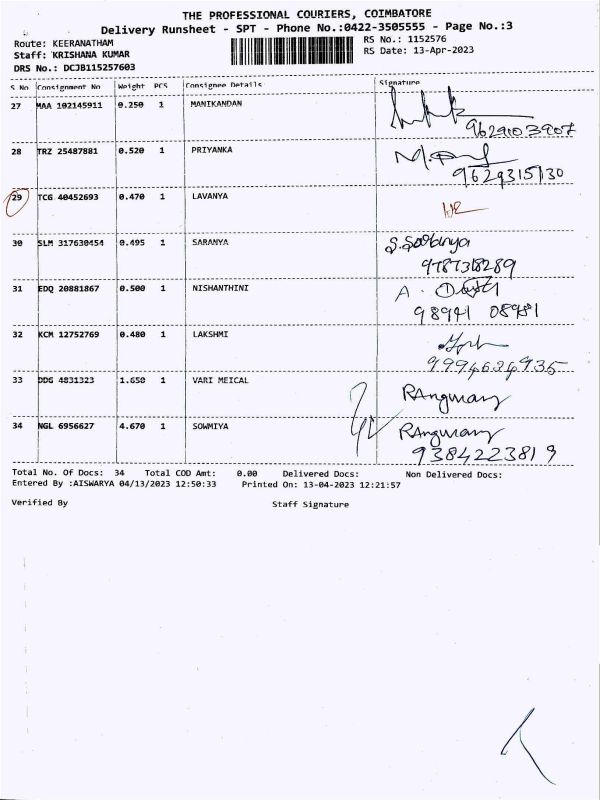 THE PROFESSIONAL COURIERS, COIMBATORE
Delivery Runsheet - SPT - Phone No.:0422-3505555 - Page No.:3
Route: KEERANATHAM RS No.: 1152576
Staff: KRISHANA KUMAR RS Date: 13-Apr-2023
DRS No.: DCJB115257603
S No Consignment No Weight PCS Consignee Details Signature
27 MAA 102145911 0.250 1 MANIKANDAN
9629103907
28 TRZ 25487881 0.520 1 PRIYANKA
9629315130
29 TCG 40452693 0.470 1 LAVANYA
30 SLM 317630454 0.495 1 SARANYA
9787318289
31 EDQ 20881867 0.500 1 NISHANTHINI A.
98941 08981
32 KCM 12752769 0.480 1 LAKSHMI
9994634935
33 DDG 4831323 1.650 1 VARI MEICAL RAngmany
34 NGL 6956627 4.670 1 SOWMIYA RAngmany
9384223819
Total No. Of Docs: 34 Total COD Amt: 0.00 Delivered Docs: Non Delivered Docs:
Entered By :AISWARYA 04/13/2023 12:50:33 Printed On: 13-04-2023 12:21:57
Verified By Staff Signature